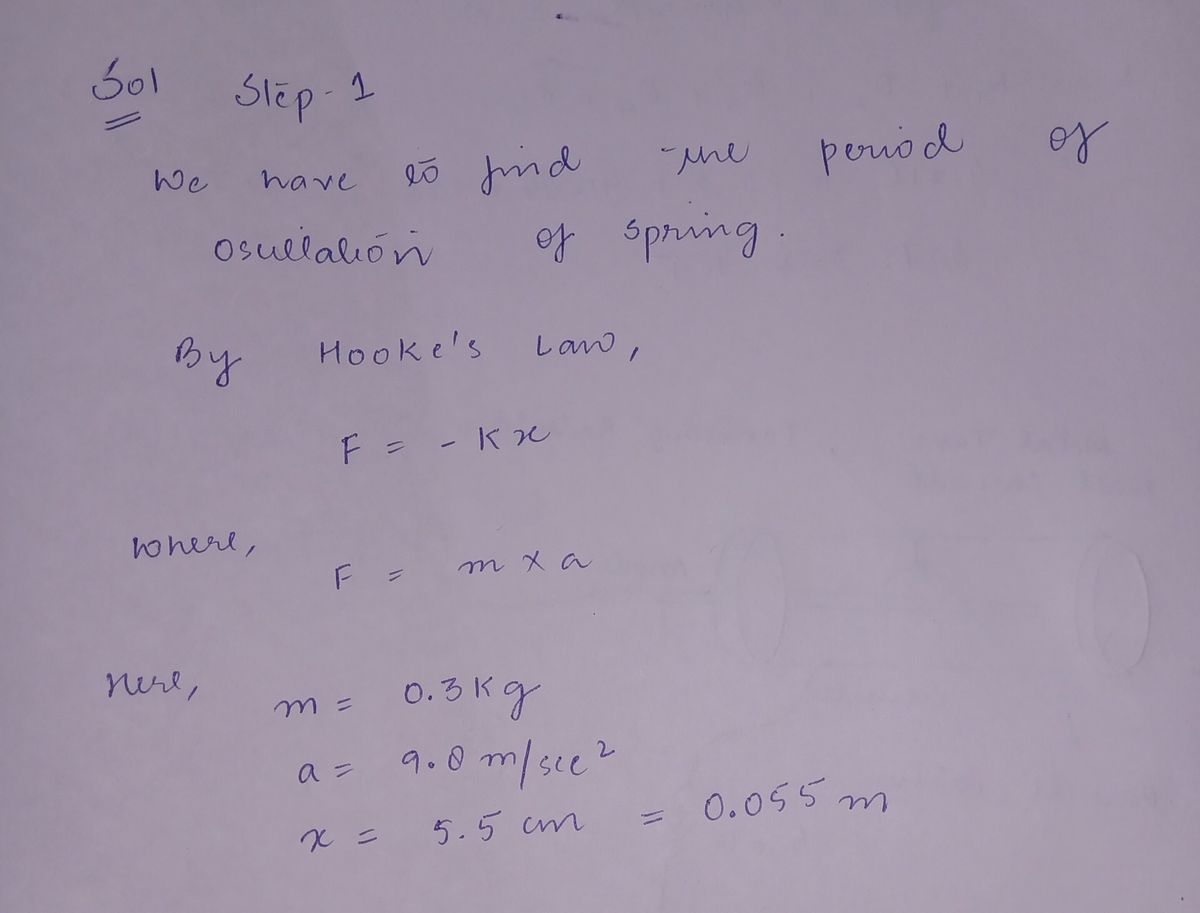 Sol Step-1
We have to find the period of
oscillation of spring.
By Hooke's Law,
F = - Kx
where,
F = m x a
Here,
m = 0.3 Kg
a = 9.8 m/sec²
x = 5.5 cm = 0.055 m